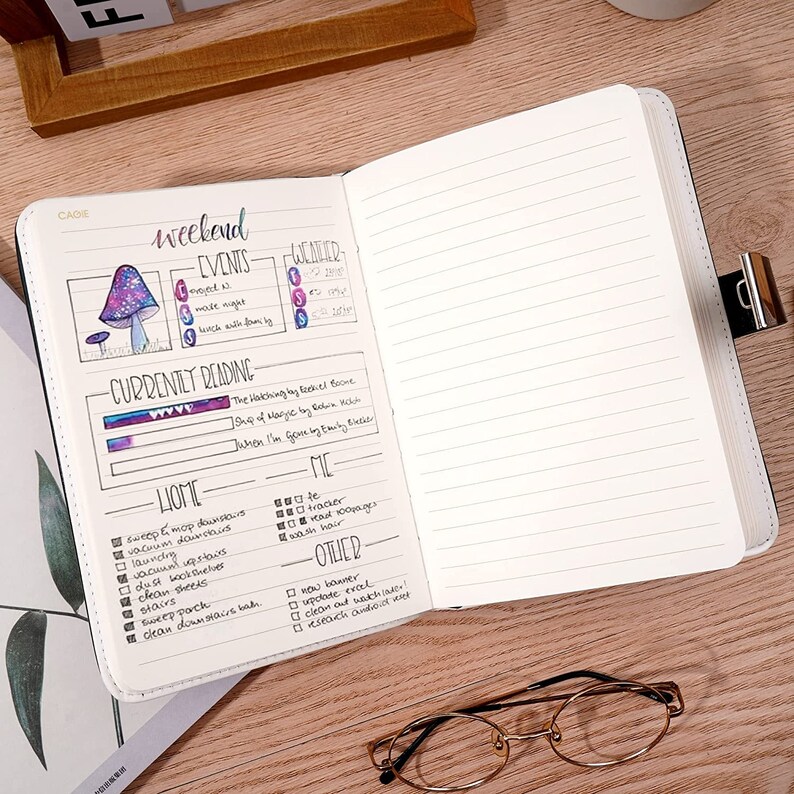 CAGIE
weekend
EVENTS
project N.
movie night
lunch with family
WEATHER
T
S
S
CURRENTLY READING
The Hatching by Ezekiel Boone
Ship of Magic by Robin Hobb
When I'm Gone by Emily Bleeker
HOME
sweep & mop downstairs
vacuum downstairs
laundry
vacuum upstairs
dust bookshelves
clean sheets
stairs
sweep porch
clean downstairs bath.
ME
tracker
read 100 pages
wash hair
OTHER
new banner
update excel
clean out watch later!
research android reset